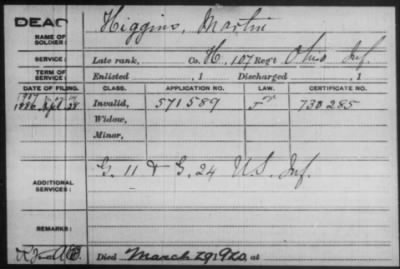 DEAD
NAME OF SOLDIER: Higgins, Martin
SERVICE: Late rank, Co. H, 107 Reg't Ohio Inf.
TERM OF SERVICE: Enlisted , 1 Discharged , 1
DATE OF FILING. CLASS. APPLICATION NO. LAW. CERTIFICATE NO.
1886 Apl. 28 Invalid, 571589 730285
Widow,
Minor,
ADDITIONAL SERVICES: G. 11 & G. 24 U.S. Inf.
REMARKS:
Died March 29, 1920, at